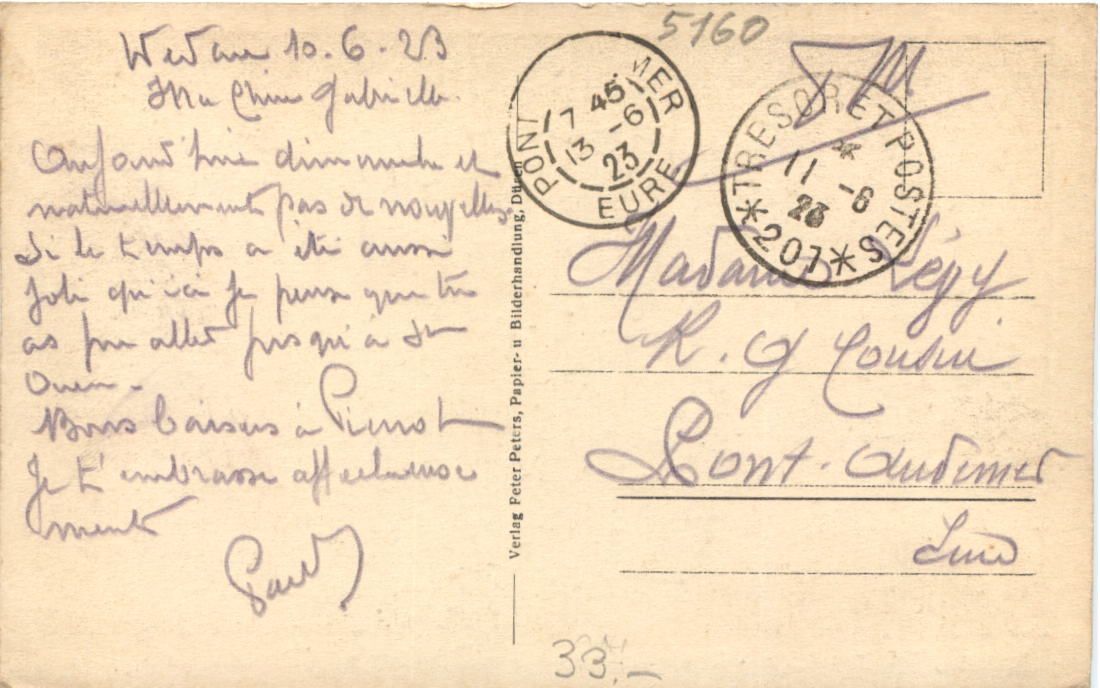 5160
Wedau 10.6.23
Ma Chère Gabrielle.
Aujourd'hui dimanche et
naturellement pas de nouvelles
Si le temps a été aussi
joli qu'ici je pense que tu
as pu aller jusqu'à St
Ouen.
Bons baisers à Pierrot
Je t'embrasse affectueuse
ment
Paul
Verlag Peter Peters, Papier- u Bilderhandlung, Düren
PONT MER
7 45
13 -6
23
EURE
FM
*TRESOR ET POSTES*
*
11 -6
23
207
Madame
R. G Cousin
Pont-Audemer
Eure
33.-